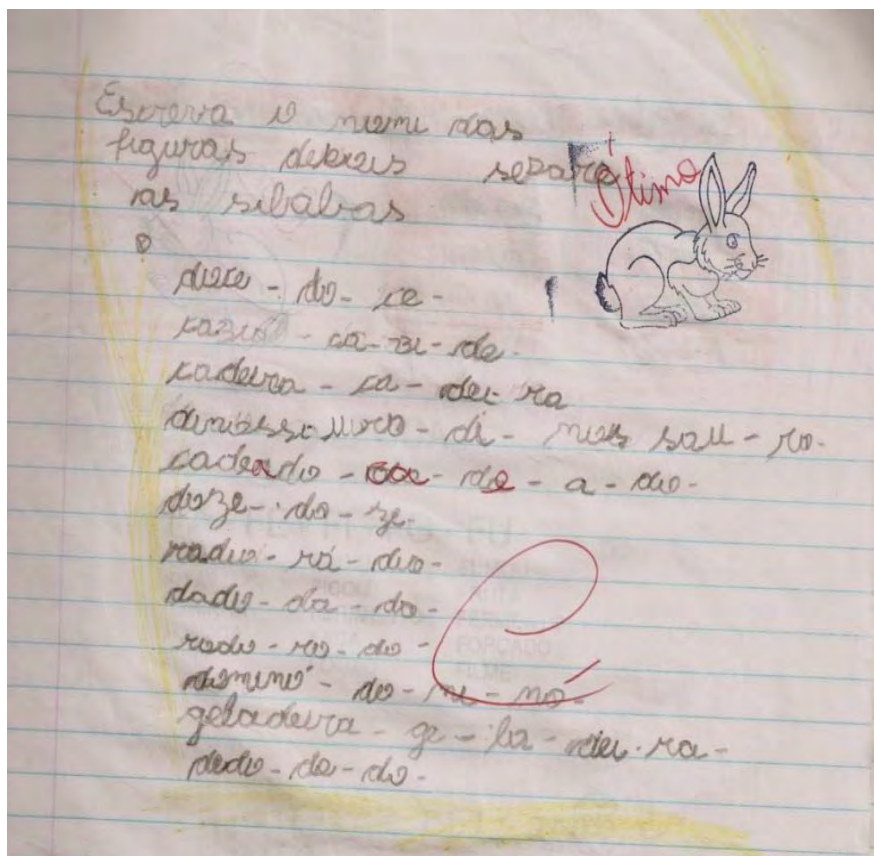 Escreva o nome das
figuras debaxo separe
as silabas
Ótimo
doce - do - ce -
cabide - ca - bi - de -
cadeira - ca - dei - ra
di - nos sau - ro -
cadeado - ca - de - a - do -
doze - do - ze -
radio - rá - dio -
dado - da - do -
rodo - ro - do -
dominó - do - mi - nó -
geladeira - ge - la - dei - ra -
dedo - de - do -